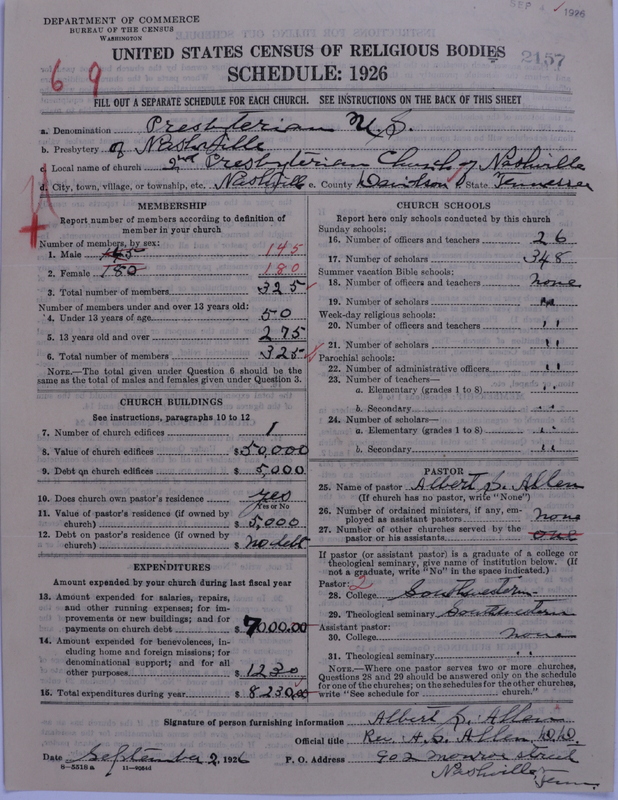 DEPARTMENT OF COMMERCE
BUREAU OF THE CENSUS
WASHINGTON
SEP 1926
UNITED STATES CENSUS OF RELIGIOUS BODIES
2157
SCHEDULE: 1926
6 9
FILL OUT A SEPARATE SCHEDULE FOR EACH CHURCH. SEE INSTRUCTIONS ON THE BACK OF THIS SHEET
a. Denomination Presbyterian U.S.
b. Presbytery of Nashville
c. Local name of church 2nd Presbyterian Church of Nashville
d. City, town, village, or township, etc. Nashville e. County Davidson State Tennessee
MEMBERSHIP
Report number of members according to definition of member in your church
Number of members, by sex:
1. Male 145 145
2. Female 180 180
3. Total number of members 325
Number of members under and over 13 years old:
4. Under 13 years of age 50
5. 13 years old and over 275
6. Total number of members 325
NOTE.—The total given under Question 6 should be the same as the total of males and females given under Question 3.
CHURCH BUILDINGS
See instructions, paragraphs 10 to 12
7. Number of church edifices 1
8. Value of church edifices $50,000
9. Debt on church edifices $5,000
10. Does church own pastor's residence yes
Yes or No
11. Value of pastor's residence (if owned by church) $5,000
12. Debt on pastor's residence (if owned by church) $ no debt
EXPENDITURES
Amount expended by your church during last fiscal year
13. Amount expended for salaries, repairs, and other running expenses; for improvements or new buildings; and for payments on church debt $7000.00
14. Amount expended for benevolences, including home and foreign missions; for denominational support; and for all other purposes $1230
15. Total expenditures during year $8230.00
CHURCH SCHOOLS
Report here only schools conducted by this church
Sunday schools:
16. Number of officers and teachers 26
17. Number of scholars 348
Summer vacation Bible schools:
18. Number of officers and teachers none
19. Number of scholars
Week-day religious schools:
20. Number of officers and teachers " "
21. Number of scholars " "
Parochial schools:
22. Number of administrative officers " "
23. Number of teachers—
a. Elementary (grades 1 to 8) " "
b. Secondary " "
24. Number of scholars—
a. Elementary (grades 1 to 8) " "
b. Secondary " "
PASTOR
25. Name of pastor Albert S. Allen
(If church has no pastor, write "None")
26. Number of ordained ministers, if any, employed as assistant pastors none
27. Number of other churches served by the pastor or his assistants one
If pastor (or assistant pastor) is a graduate of a college or theological seminary, give name of institution below. (If not a graduate, write "No" in the space indicated.)
Pastor: 2
28. College Southwestern
29. Theological seminary Southwestern
Assistant pastor:
30. College none
31. Theological seminary " "
NOTE.—Where one pastor serves two or more churches, Questions 28 and 29 should be answered only on the schedule for one of the churches; on the schedules for the other churches, write "See schedule for church."
Signature of person furnishing information Albert S. Allen
Official title Rev. A. S. Allen D.D.
Date September 2, 1926 P. O. Address 902 Monroe Street
8-5518a 11-9084d
Nashville Tenn.